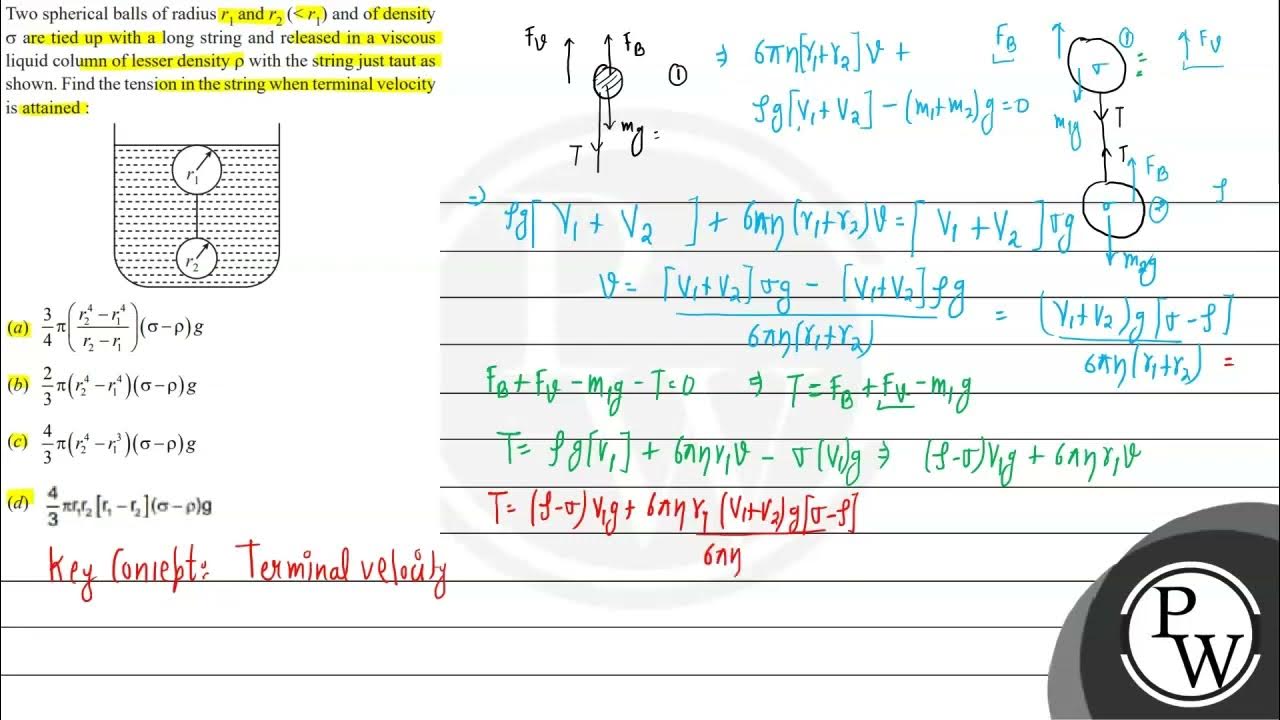 Two spherical balls of radius r₁ and r₂ (< r₁) and of density
σ are tied up with a long string and released in a viscous
liquid column of lesser density ρ with the string just taut as
shown. Find the tension in the string when terminal velocity
is attained :
r₁
r₂
(a) 3/4 π((r₂⁴ − r₁⁴)/(r₂ − r₁))(σ − ρ)g
(b) 2/3 π(r₂⁴ − r₁⁴)(σ − ρ)g
(c) 4/3 π(r₂⁴ − r₁³)(σ − ρ)g
(d) 4/3 πr₁r₂[r₁ − r₂](σ − ρ)g
Key Concept: Terminal velocity
Fᵥ
F_B
①
m₁g
T
⇒ 6πη[r₁+r₂]v +
ρg[V₁+V₂] − (m₁+m₂)g = 0
F_B
①
Fᵥ
σ
m₁g
T
T
F_B
σ
②
ρ
m₂g
⇒ ρg[V₁ + V₂] + 6πη(r₁+r₂)v = [V₁ + V₂]σg
v = ([V₁+V₂]σg − [V₁+V₂]ρg)/(6πη(r₁+r₂)) = ((V₁+V₂)g[σ−ρ])/(6πη(r₁+r₂))
F_B + Fᵥ − m₁g − T = 0 ⇒ T = F_B + Fᵥ − m₁g
T = ρg[V₁] + 6πηr₁v − σ(V₁)g ⇒ (ρ−σ)V₁g + 6πηr₁v
T = (ρ−σ)V₁g + 6πηr₁ (V₁+V₂)g[σ−ρ]/6πη
PW
P
W